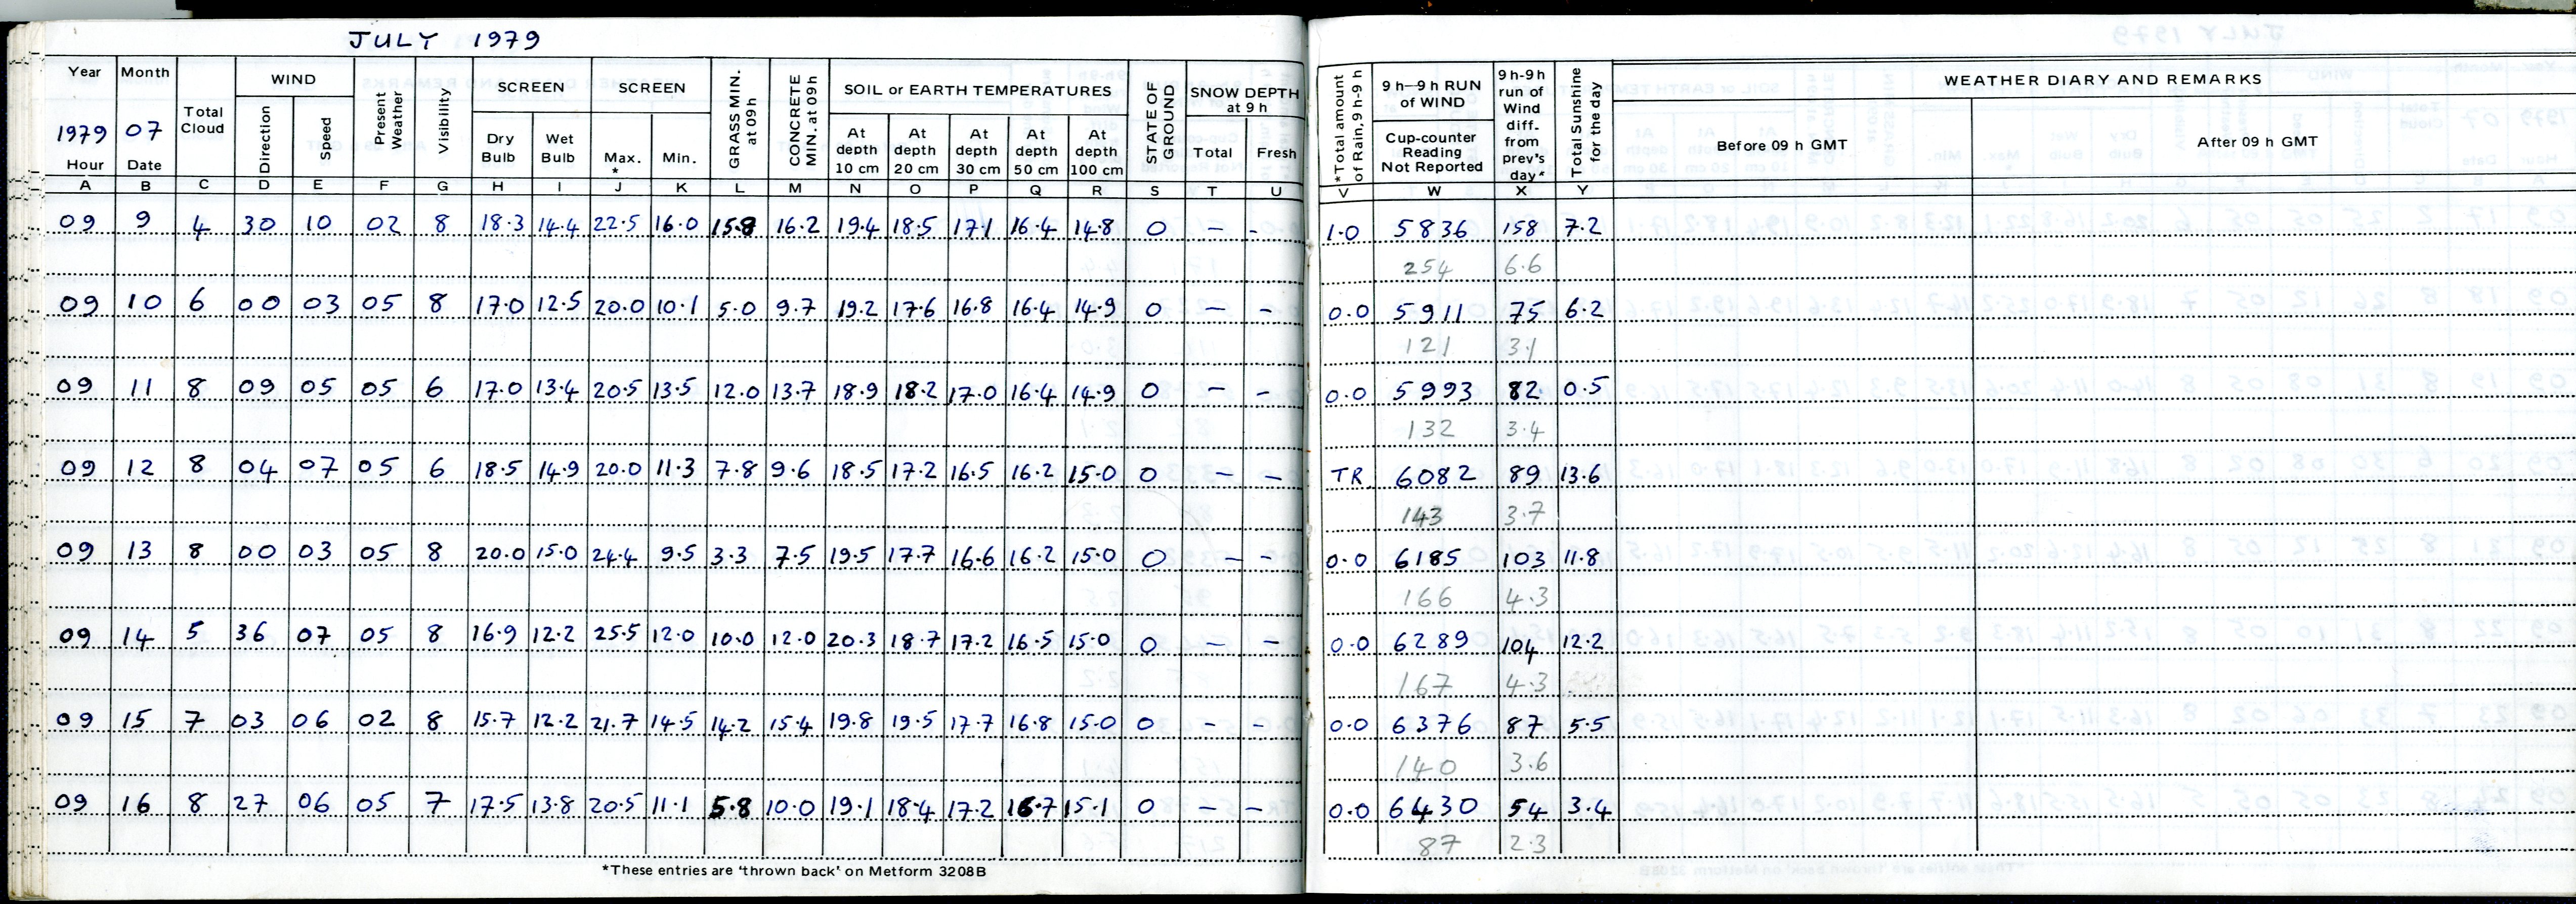 JULY 1979
Year Month Total Cloud WIND Present Weather Visibility SCREEN SCREEN GRASS MIN. at 09h CONCRETE MIN. at 09h SOIL or EARTH TEMPERATURES STATE OF GROUND SNOW DEPTH at 9 h *Total amount of Rain, 9h-9h 9 h—9 h RUN of WIND 9 h-9 h run of Wind diff- from prev's day* Total Sunshine for the day WEATHER DIARY AND REMARKS
1979 07 Direction Speed Dry Bulb Wet Bulb Max. * Min. At depth 10 cm At depth 20 cm At depth 30 cm At depth 50 cm At depth 100 cm Total Fresh Cup-counter Reading Not Reported Before 09 h GMT After 09 h GMT
Hour Date
A B C D E F G H I J K L M N O P Q R S T U V W X Y
09 9 4 30 10 02 8 18.3 14.4 22.5 16.0 15.8 16.2 19.4 18.5 17.1 16.4 14.8 0 – - 1.0 5836 158 7.2
254 6.6
09 10 6 00 03 05 8 17.0 12.5 20.0 10.1 5.0 9.7 19.2 17.6 16.8 16.4 14.9 0 – – 0.0 5911 75 6.2
121 3.1
09 11 8 09 05 05 6 17.0 13.4 20.5 13.5 12.0 13.7 18.9 18.2 17.0 16.4 14.9 0 – – 0.0 5993 82 0.5
132 3.4
09 12 8 04 07 05 6 18.5 14.9 20.0 11.3 7.8 9.6 18.5 17.2 16.5 16.2 15.0 0 – – TR 6082 89 13.6
143 3.7
09 13 8 00 03 05 8 20.0 15.0 24.4 9.5 3.3 7.5 19.5 17.7 16.6 16.2 15.0 0 – – 0.0 6185 103 11.8
166 4.3
09 14 5 36 07 05 8 16.9 12.2 25.5 12.0 10.0 12.0 20.3 18.7 17.2 16.5 15.0 0 – – 0.0 6289 104 12.2
167 4.3
09 15 7 03 06 02 8 15.7 12.2 21.7 14.5 14.2 15.4 19.8 19.5 17.7 16.8 15.0 0 – – 0.0 6376 87 5.5
140 3.6
09 16 8 27 06 05 7 17.5 13.8 20.5 11.1 5.8 10.0 19.1 18.4 17.2 16.7 15.1 0 – – 0.0 6430 54 3.4
87 2.3
*These entries are 'thrown back' on Metform 3208B